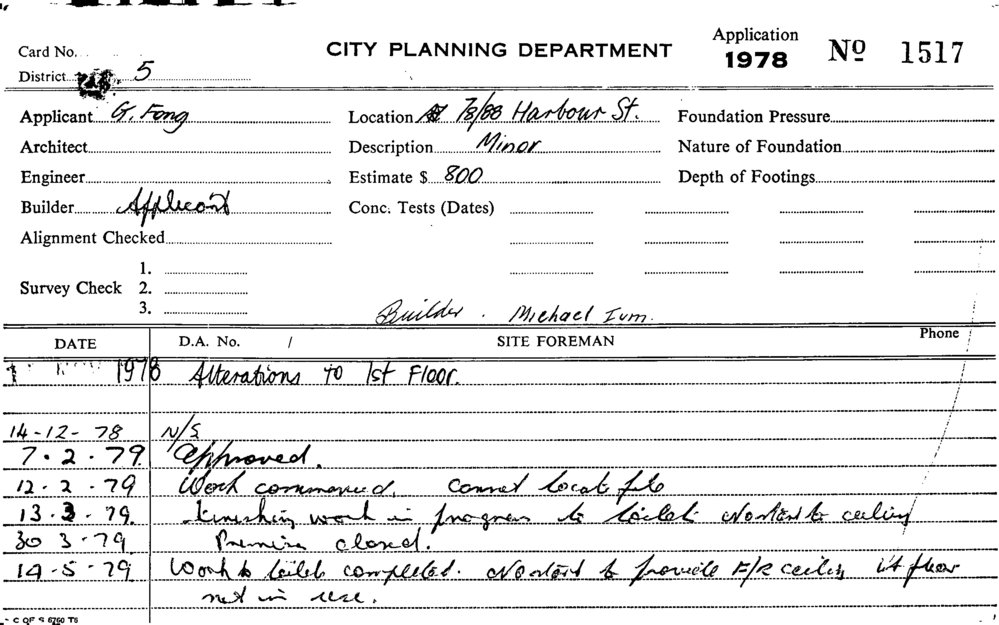 Card No.
CITY PLANNING DEPARTMENT
Application 1978 No 1517
District 5
Applicant G. Fong Location 78/88 Harbour St. Foundation Pressure
Architect Description Minor Nature of Foundation
Engineer Estimate $ 800 Depth of Footings
Builder Applicant Conc. Tests (Dates)
Alignment Checked
1.
Survey Check 2.
3.
Builder . Michael
DATE D.A. No. / SITE FOREMAN Phone
1978 Alterations to 1st Floor.
14-12-78 N/S
7.2.79 Approved.
12.2.79 Work commenced. Cannot locate file
13.3.79. Finishing work in progress to toilet No start to ceiling
30 3.79 Premises closed.
14-5-79 Work to toilets completed. No start to provide F/R ceiling 1st floor
not in use.
C OF S 6760 T6